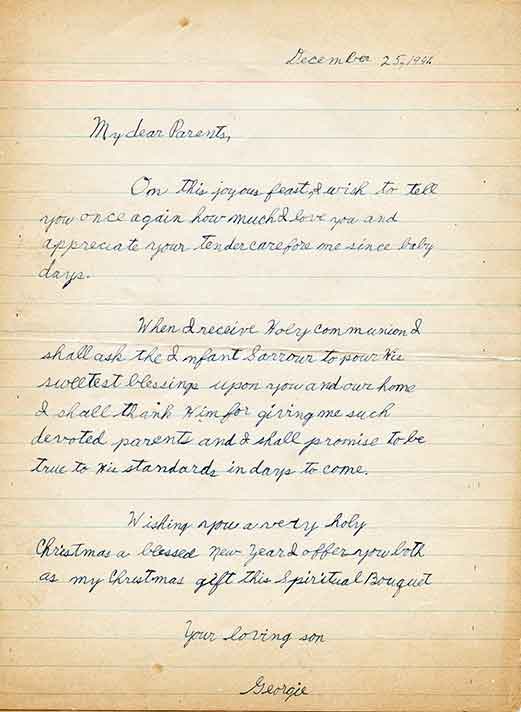 December 25, 194
My dear Parents,
On this joyous feast, I wish to tell
you once again how much I love you and
appreciate your tender care fore me since baby
days.
When I receive Holy Communion I
shall ask the Infant Sarrour to pour His
sweetest blessings upon you and our home
I shall thank Him for giving me such
devoted parents and I shall promise to be
true to His standards in days to come.
Wishing you a very holy
Christmas a blessed New Year I offer you both
as my Christmas gift this Spiritual Bouquet
Your loving son
Georgie